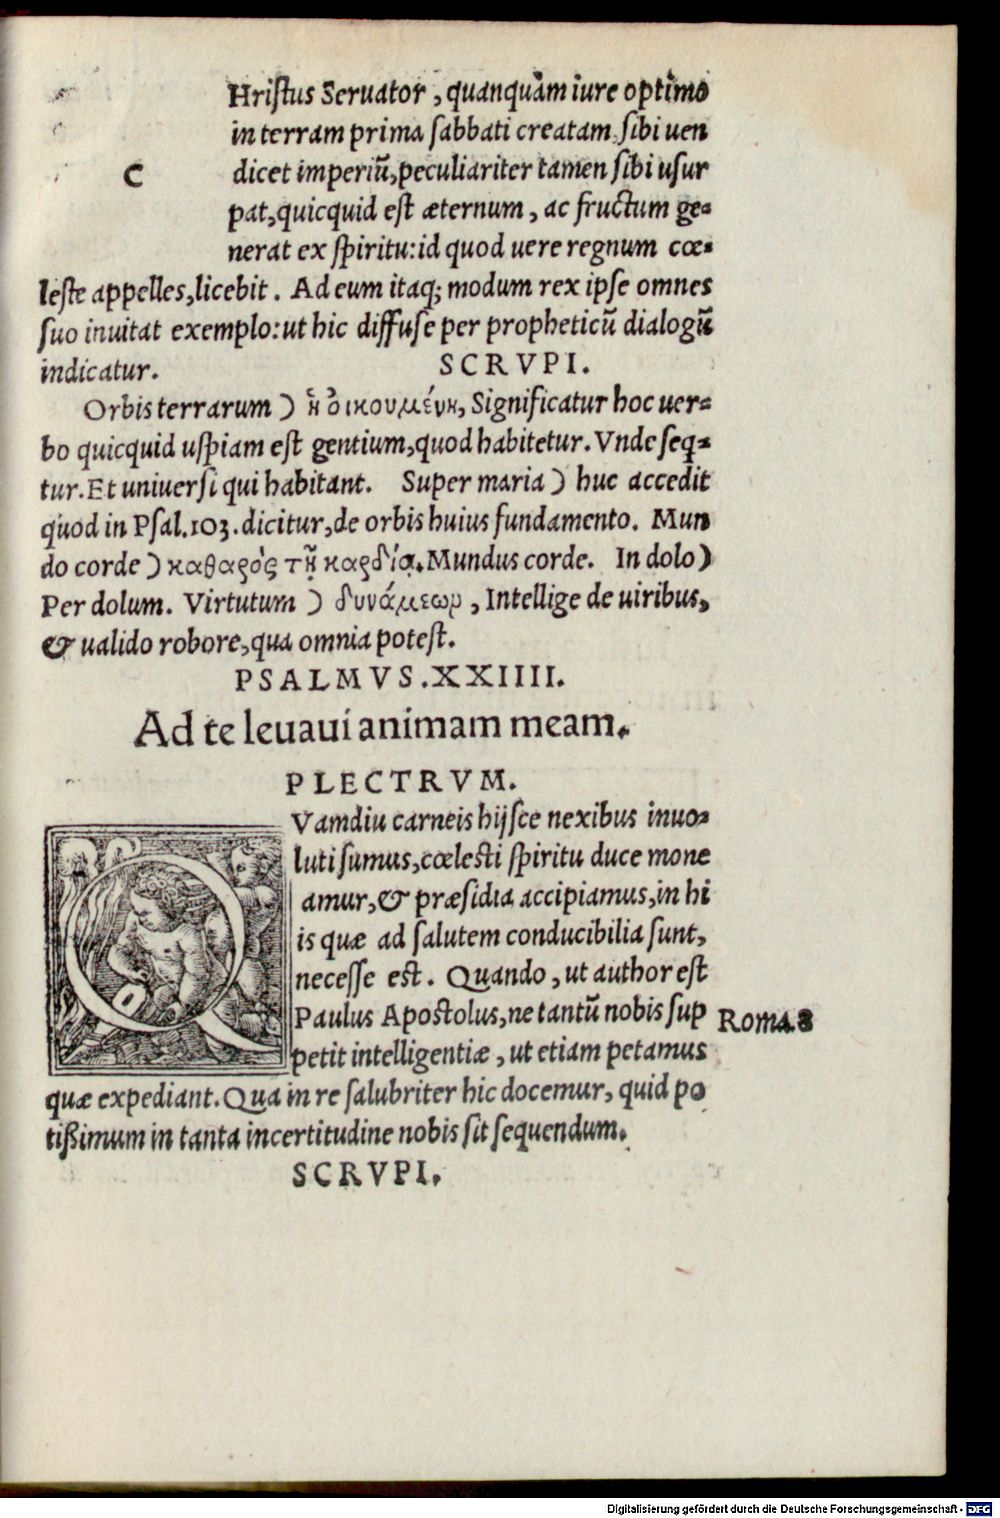 CHristus Seruator, quanquàm iure optimo
in terram prima sabbati creatam sibi uen
dicet imperiũ, peculiariter tamen sibi usur
pat, quicquid est æternum, ac fructum ge=
nerat ex spiritu: id quod uere regnum cœ=
leste appelles, licebit. Ad eum itaq; modum rex ipse omnes
suo inuitat exemplo: ut hic diffuse per propheticũ dialogũ
indicatur.
SCRVPI.
Orbis terrarum ) ἡ ὀικουμένη, Significatur hoc uer=
bo quicquid uspiam est gentium, quod habitetur. Vnde seq=
tur. Et uniuersi qui habitant. Super maria ) huc accedit
quod in Psal. 103. dicitur, de orbis huius fundamento. Mun
do corde ) καθαρὸς τῇ καρδίᾳ. Mundus corde. In dolo )
Per dolum. Virtutum ) δυνάμεωρ, Intellige de uiribus,
& ualido robore, qua omnia potest.
PSALMVS. XXIIII.
Ad te leuaui animam meam.
PLECTRVM.
QVamdiu carneis hijsce nexibus inuo=
luti sumus, cœlesti spiritu duce mone
amur, & præsidia accipiamus, in hi
is quæ ad salutem conducibilia sunt,
necesse est. Quando, ut author est
Paulus Apostolus, ne tantũ nobis sup
Roma. 8
petit intelligentiæ, ut etiam petamus
quæ expediant. Qua in re salubriter hic docemur, quid po
tißimum in tanta incertitudine nobis sit sequendum.
SCRVPI.
Digitalisierung gefördert durch die Deutsche Forschungsgemeinschaft - DFG